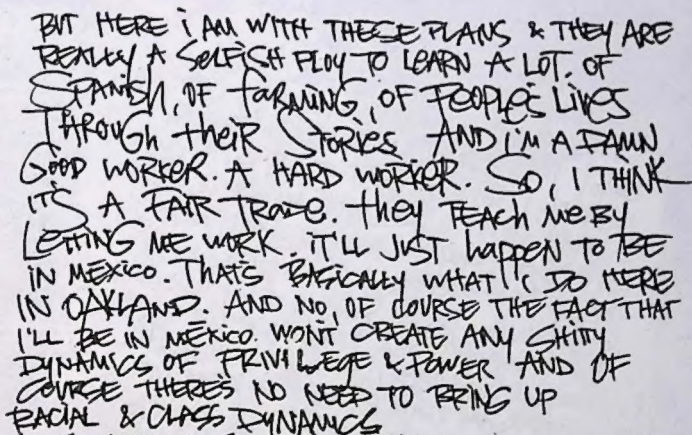 BUT HERE i AM WITH THESE PLANS & THEY ARE
REALLY A SELFISH PLOY TO LEARN A LOT. OF
SPANISH, OF FARMING, OF PEOPLE'S LIVES
THROUGH THEIR STORIES AND I'M A DAMN
GOOD WORKER. A HARD WORKER. SO, I THINK
IT'S A FAIR TRADE. THEY TEACH ME BY
LETTING ME WORK. IT'LL JUST HAPPEN TO BE
IN MEXICO. THAT'S BASICALLY WHAT I DO HERE
IN OAKLAND. AND NO, OF COURSE THE FACT THAT
I'LL BE IN MEXICO. WON'T CREATE ANY SHITTY
DYNAMICS OF PRIVILEGE & POWER AND OF
COURSE THERE'S NO NEED TO BRING UP
RACIAL & CLASS DYNAMICS